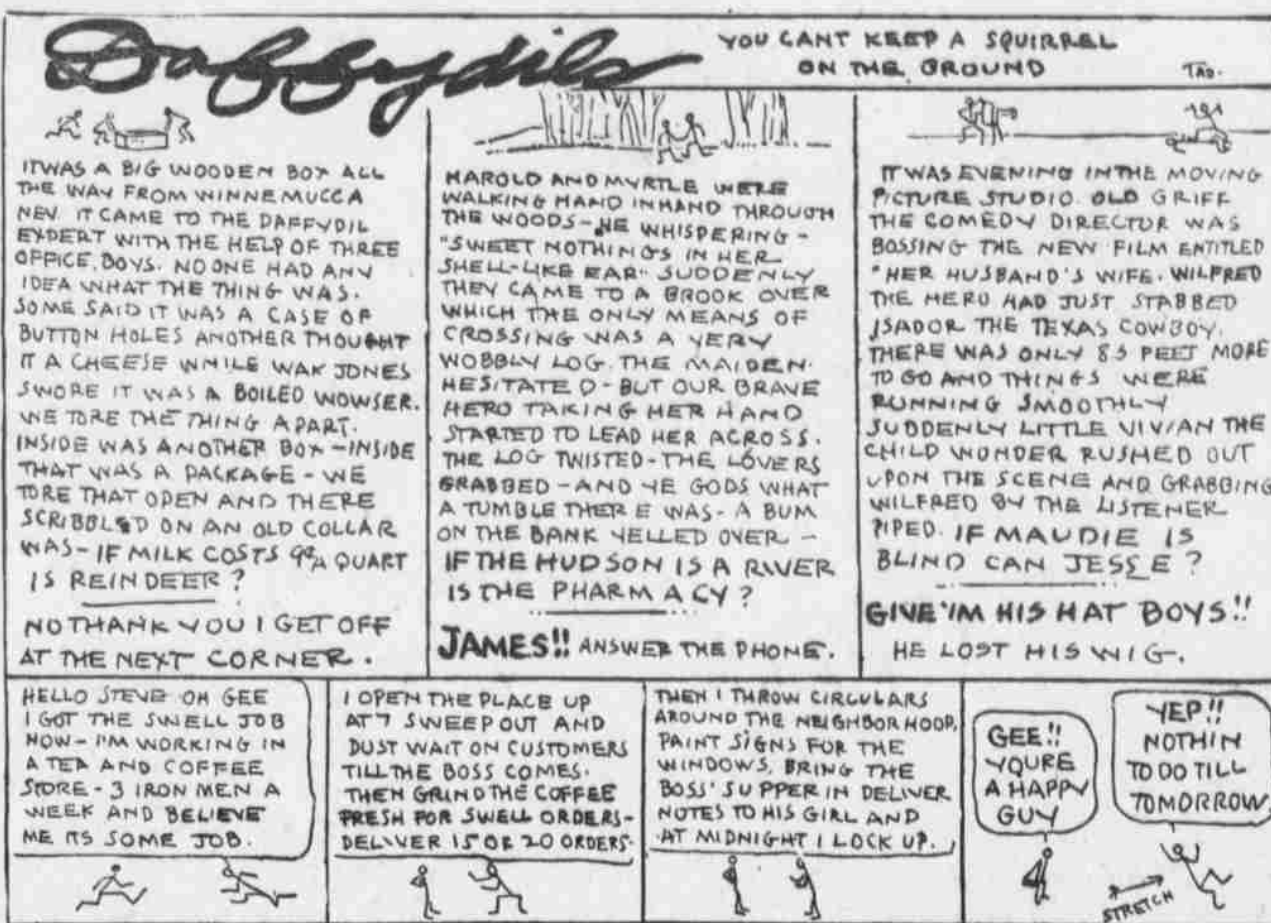 Daffydils
YOU CANT KEEP A SQUIRREL
ON THE GROUND
TAD.
IT WAS A BIG WOODEN BOX ALL
THE WAY FROM WINNEMUCCA
NEV. IT CAME TO THE DAFFYDIL
EXPERT WITH THE HELP OF THREE
OFFICE, BOYS. NO ONE HAD ANY
IDEA WHAT THE THING WAS.
SOME SAID IT WAS A CASE OF
BUTTON HOLES ANOTHER THOUGHT
IT A CHEESE WHILE WAK JONES
SWORE IT WAS A BOILED WOWSER.
WE TORE THE THING APART.
INSIDE WAS ANOTHER BOX - INSIDE
THAT WAS A PACKAGE - WE
TORE THAT OPEN AND THERE
SCRIBBLED ON AN OLD COLLAR
WAS - IF MILK COSTS 9¢ A QUART
IS REINDEER?
NO THANK YOU I GET OFF
AT THE NEXT CORNER.
HAROLD AND MYRTLE WERE
WALKING HAND IN HAND THROUGH
THE WOODS - HE WHISPERING -
"SWEET NOTHINGS IN HER
SHELL-LIKE EAR" SUDDENLY
THEY CAME TO A BROOK OVER
WHICH THE ONLY MEANS OF
CROSSING WAS A VERY
WOBBLY LOG. THE MAIDEN.
HESITATED - BUT OUR BRAVE
HERO TAKING HER HAND
STARTED TO LEAD HER ACROSS.
THE LOG TWISTED - THE LOVERS
GRABBED - AND YE GODS WHAT
A TUMBLE THERE WAS - A BUM
ON THE BANK YELLED OVER -
IF THE HUDSON IS A RIVER
IS THE PHARMACY?
JAMES!! ANSWER THE PHONE.
IT WAS EVENING IN THE MOVING
PICTURE STUDIO. OLD GRIFF
THE COMEDY DIRECTOR WAS
BOSSING THE NEW FILM ENTITLED
"HER HUSBAND'S WIFE. WILFRED
THE HERO HAD JUST STABBED
ISADOR THE TEXAS COWBOY.
THERE WAS ONLY 85 FEET MORE
TO GO AND THINGS WERE
RUNNING SMOOTHLY
SUDDENLY LITTLE VIVIAN THE
CHILD WONDER RUSHED OUT
UPON THE SCENE AND GRABBING
WILFRED BY THE LISTENER
PIPED. IF MAUDIE IS
BLIND CAN JESSE?
GIVE 'IM HIS HAT BOYS!!
HE LOST HIS WIG.
HELLO STEVE OH GEE
I GOT THE SWELL JOB
NOW - I'M WORKING IN
A TEA AND COFFEE
STORE - 3 IRON MEN A
WEEK AND BELIEVE
ME ITS SOME JOB.
I OPEN THE PLACE UP
AT 7 SWEEP OUT AND
DUST WAIT ON CUSTOMERS
TILL THE BOSS COMES.
THEN GRIND THE COFFEE
FRESH FOR SWELL ORDERS -
DELIVER 15 OR 20 ORDERS.
THEN I THROW CIRCULARS
AROUND THE NEIGHBORHOOD,
PAINT SIGNS FOR THE
WINDOWS, BRING THE
BOSS' SUPPER IN DELIVER
NOTES TO HIS GIRL AND
AT MIDNIGHT I LOCK UP.
GEE!!
YOURE
A HAPPY
GUY
YEP!!
NOTHIN
TO DO TILL
TOMORROW
STRETCH